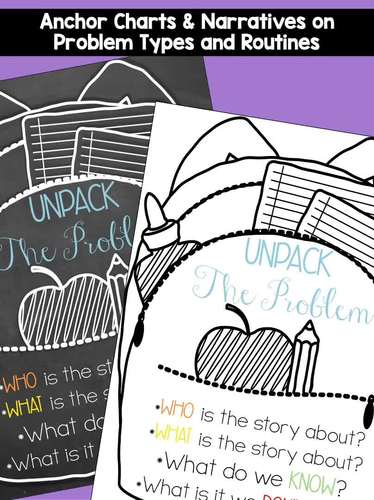 Anchor Charts & Narratives on
Problem Types and Routines
UNPACK
The
•WHO is the
•WHAT is the
•What do
•What is it
UNPACK
The Problem
•WHO is the story about?
•WHAT is the story about?
•What do we KNOW?
•What is it we